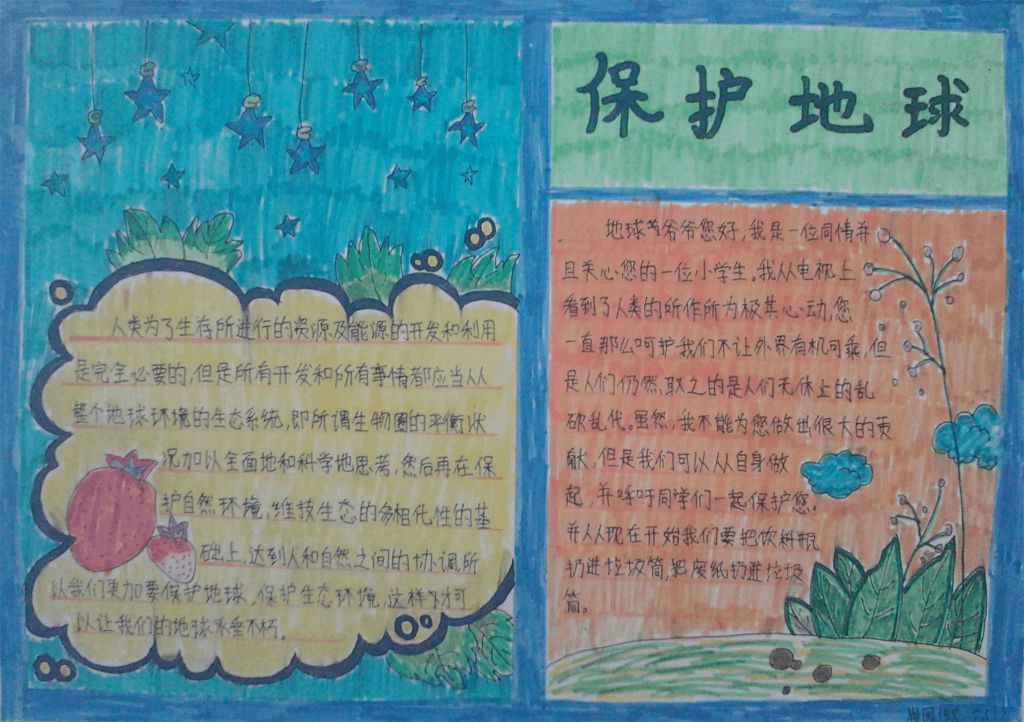 保护地球
人类为了生存所进行的资源及能源的开发和利用
是完全必要的,但是所有开发和所有事情都应当从
整个地球环境的生态系统,即所谓生物圈的平衡状
况加以全面地和科学地思考,然后再在保
护自然环境、维技生态的多相化性的基
础上,达到人和自然之间的协调,所
以我们更加要保护地球,保护生态环境,这样才可
以让我们的地球永垂不朽。
地球爷爷您好,我是一位同情并
且关心您的一位小学生。我从电视上
看到了人类的所作所为极其心动,您
一直那么呵护我们不让外界有机可乘,但
是人们仍然,取之的是人们无休止的乱
砍乱伐。虽然,我不能为您做出很大的贡
献,但是我们可以从自身做
起,并呼吁同学们一起保护您。
并从现在开始我们要把饮料瓶
扔进垃圾筒,把废纸扔进垃圾
筒。